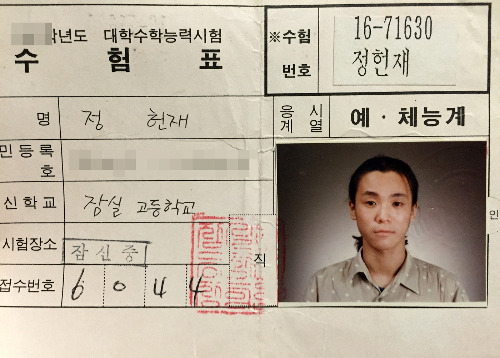 학년도 대학수학능력시험
수 험 표
※수험
번호
16-71630
정헌재
명 정 헌재
응시
계열
예·체능계
민등록
호
신학교 잠실 고등학교
시험장소 잠신중
직
인
접수번호 6044